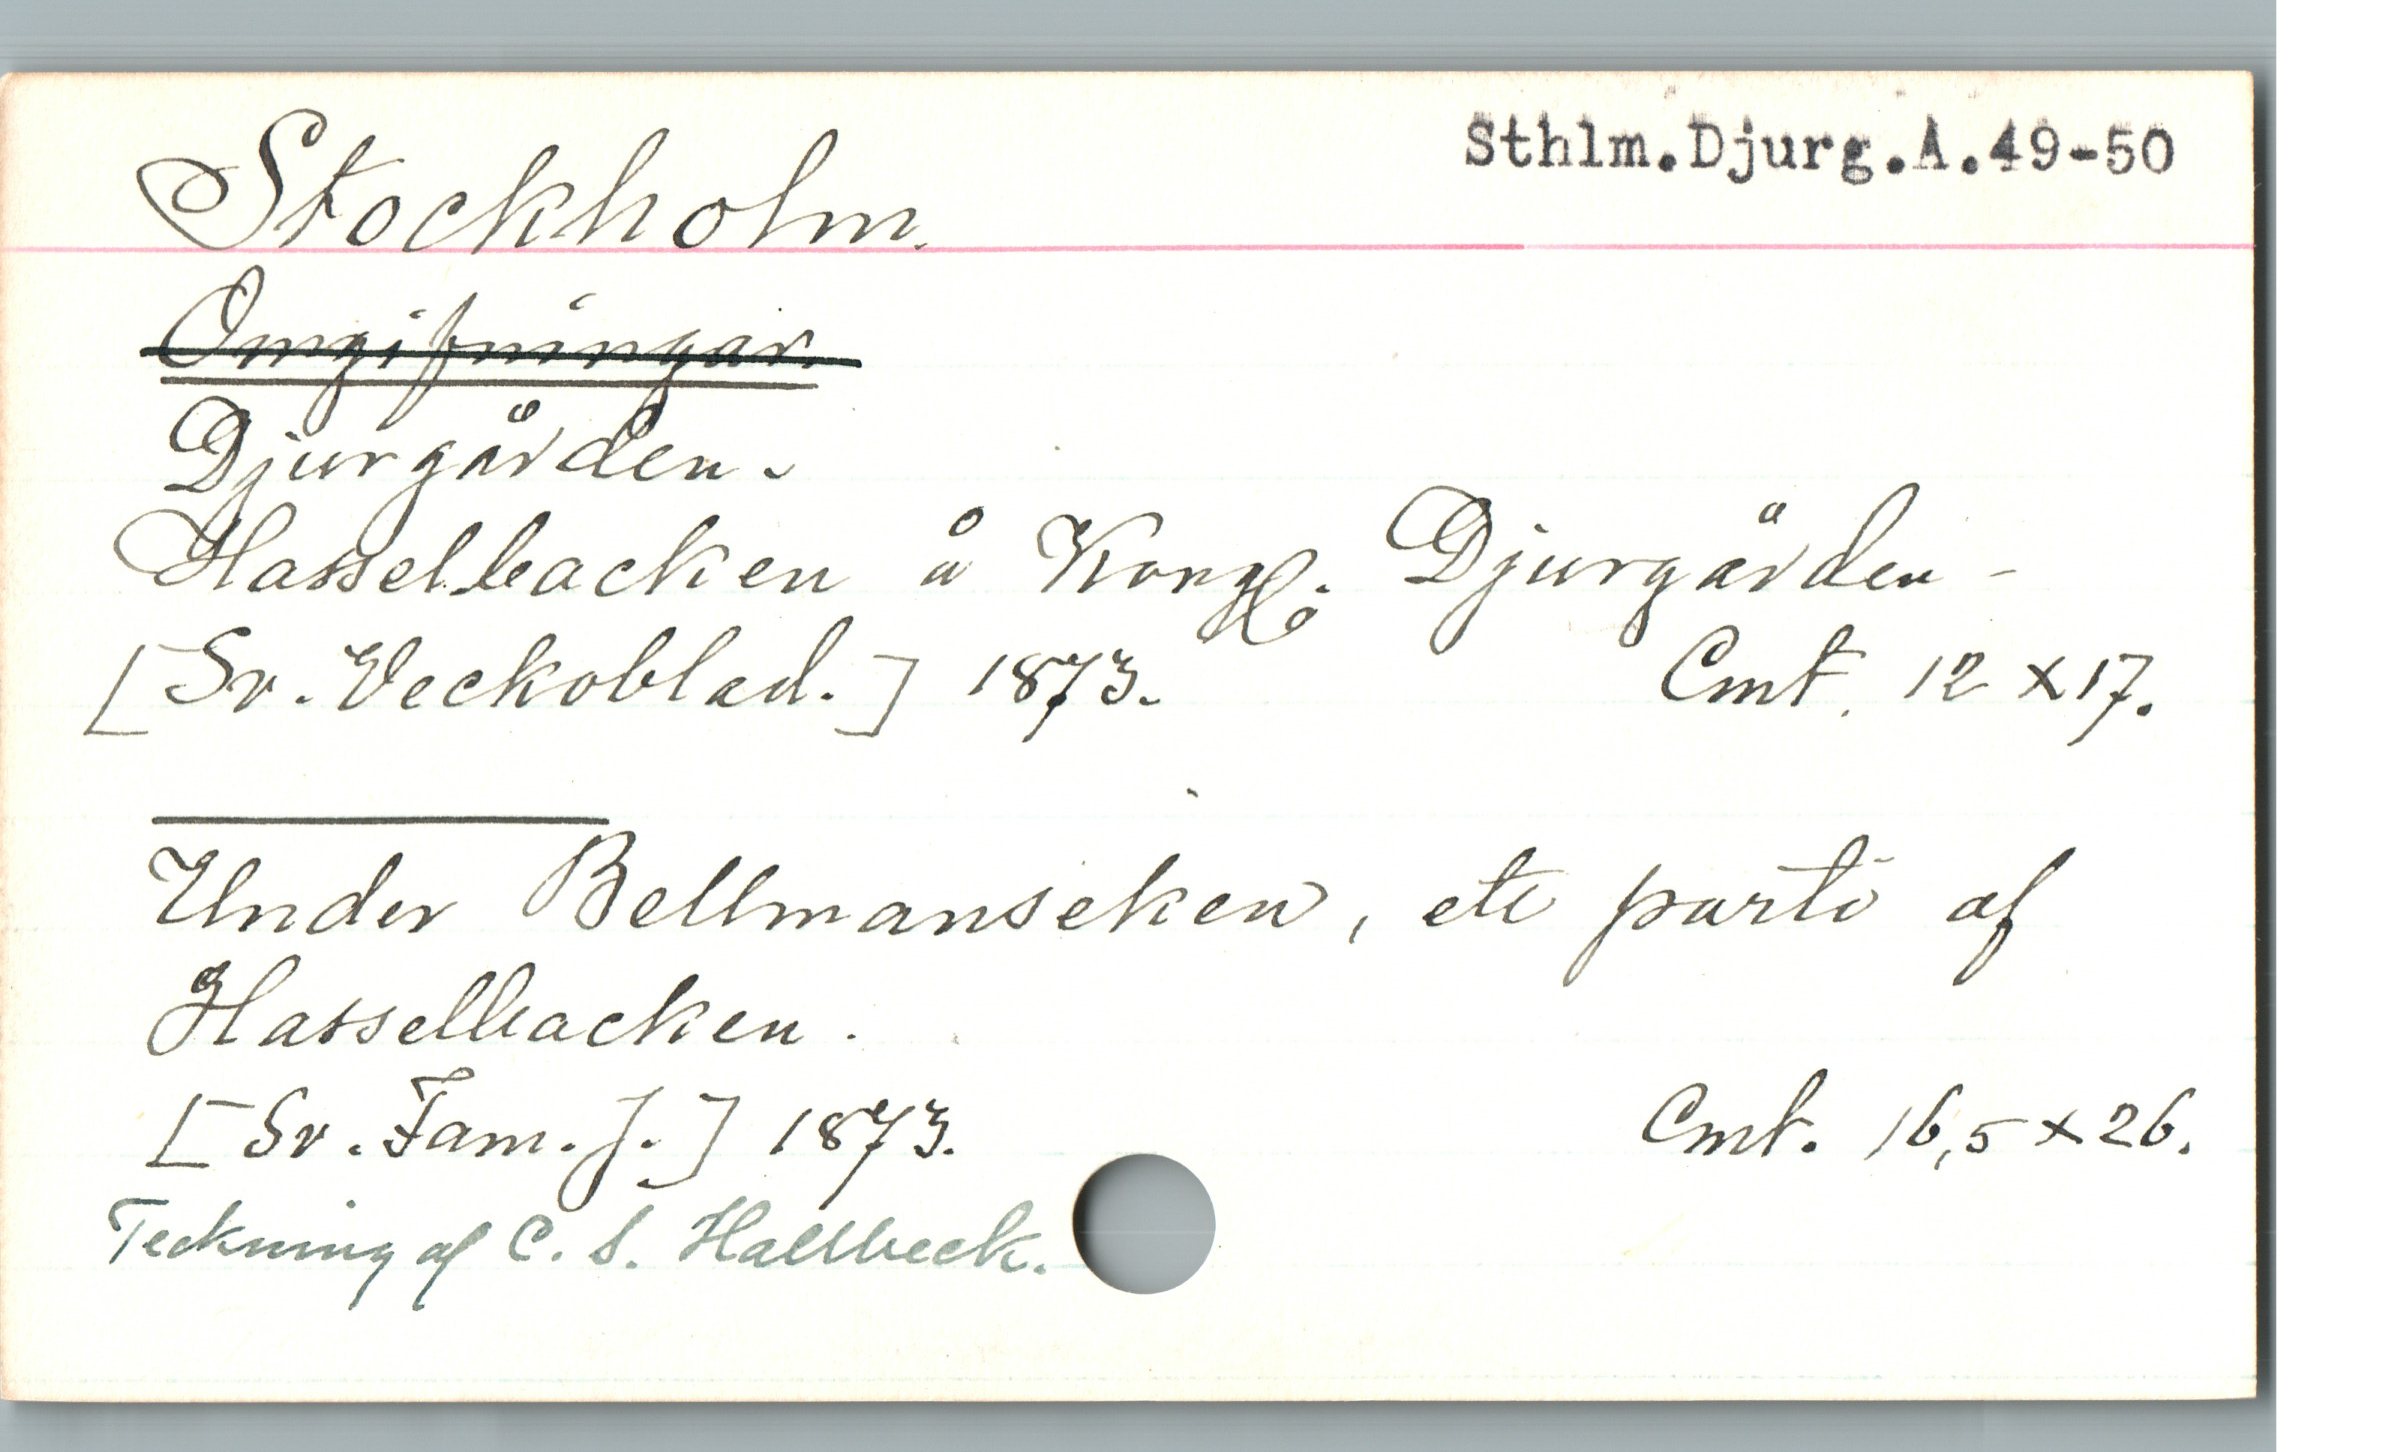 Stockholm.
Sthlm.Djurg.A.49-50
Omgifningar.
Djurgården.
Hasselbacken å Kongl. Djurgården -
[Sv. Veckoblad.] 1873. Cmt. 12 x 17.
Under Bellmanseken, ett parti af
Hasselbacken.
[Sv. Fam. J.] 1873. Cmt. 16,5 x 26.
Teckning af C. S. Hallbeck.